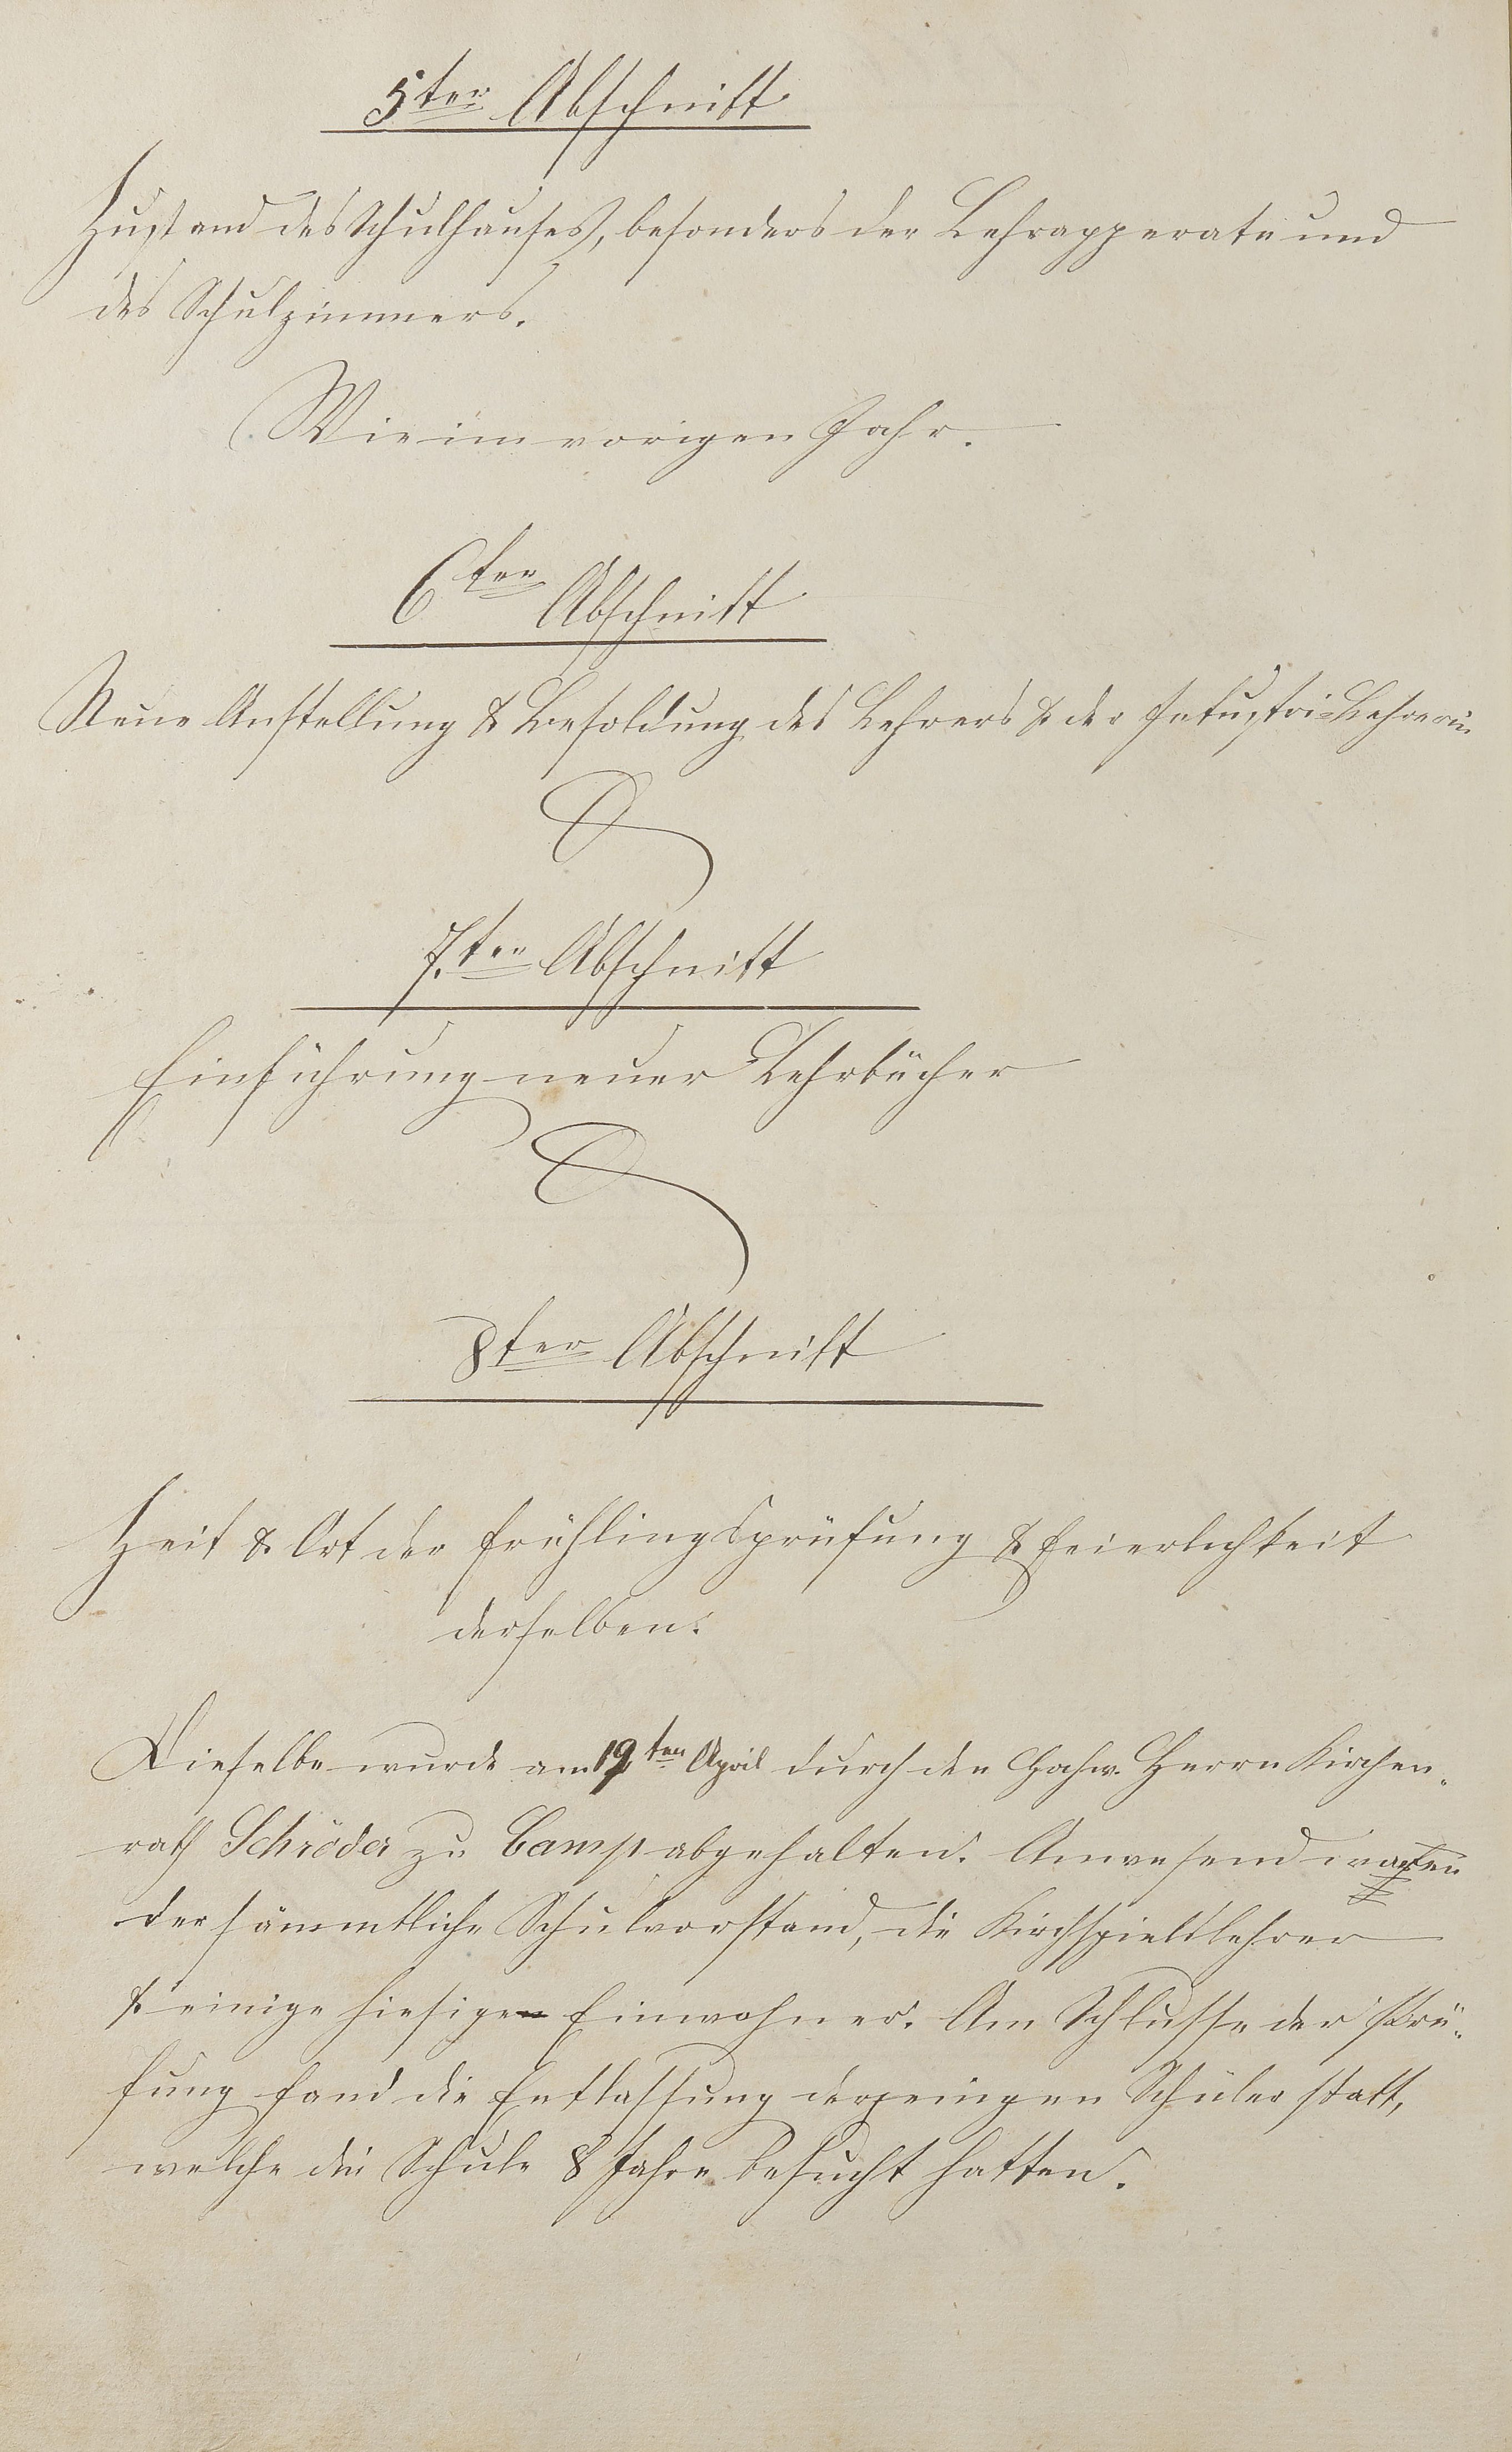 5ter Abschnitt
Zustand des Schulhauses, besonders der Lehrapperate und
des Schulzimmers.
Wie im vorigen Jahr.
6ter Abschnitt
Neue Anstellung & Besoldung des Lehrers & der Intustri-Lehrerin
7.ter Abschnitt
Einführung neuer Lehrbücher
8ter Abschnitt
Zeit & Ort der Frühlingsprüfung & Feierlichkeit
derselben.
Dieselbe wurde am 19ten April durch den Hochw. Herrn Kirchen-
rath Schröder zu Camp abgehalten. Anwesend waren
der sämmtliche Schulvorstand, die Kirchspielslehrer
& einige hiesige Einwohner. Am Schlusse der Prü-
fung fand die Entlassung derjenigen Schüler statt,
welche die Schule 8 Jahre besucht hatten.